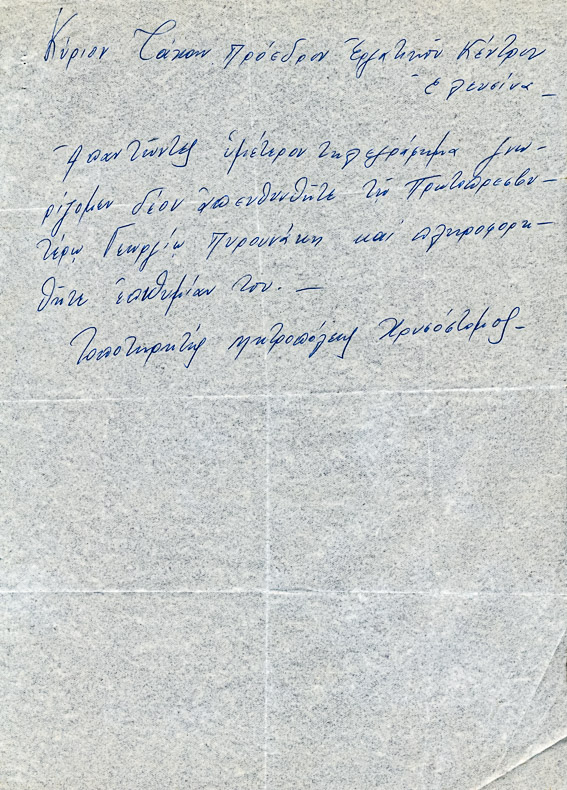 Κύριον Τάκον Πρόεδρον Ἐργατικοῦ Κέντρου
Ἐλευσῖνα –
Ἀπαντῶντες ὑμέτερον τηλεγράφημα γνω–
ρίζομεν δέον ἀπευθυνθῆτε τῷ Πρωτοπρεσβυ–
τέρῳ Γεωργίῳ Πυρουνάκη καί πληροφορη–
θῆτε ἐπιθυμίαν του. –
Τοποτηρητής Μητροπόλεως Χρυσόστομος –